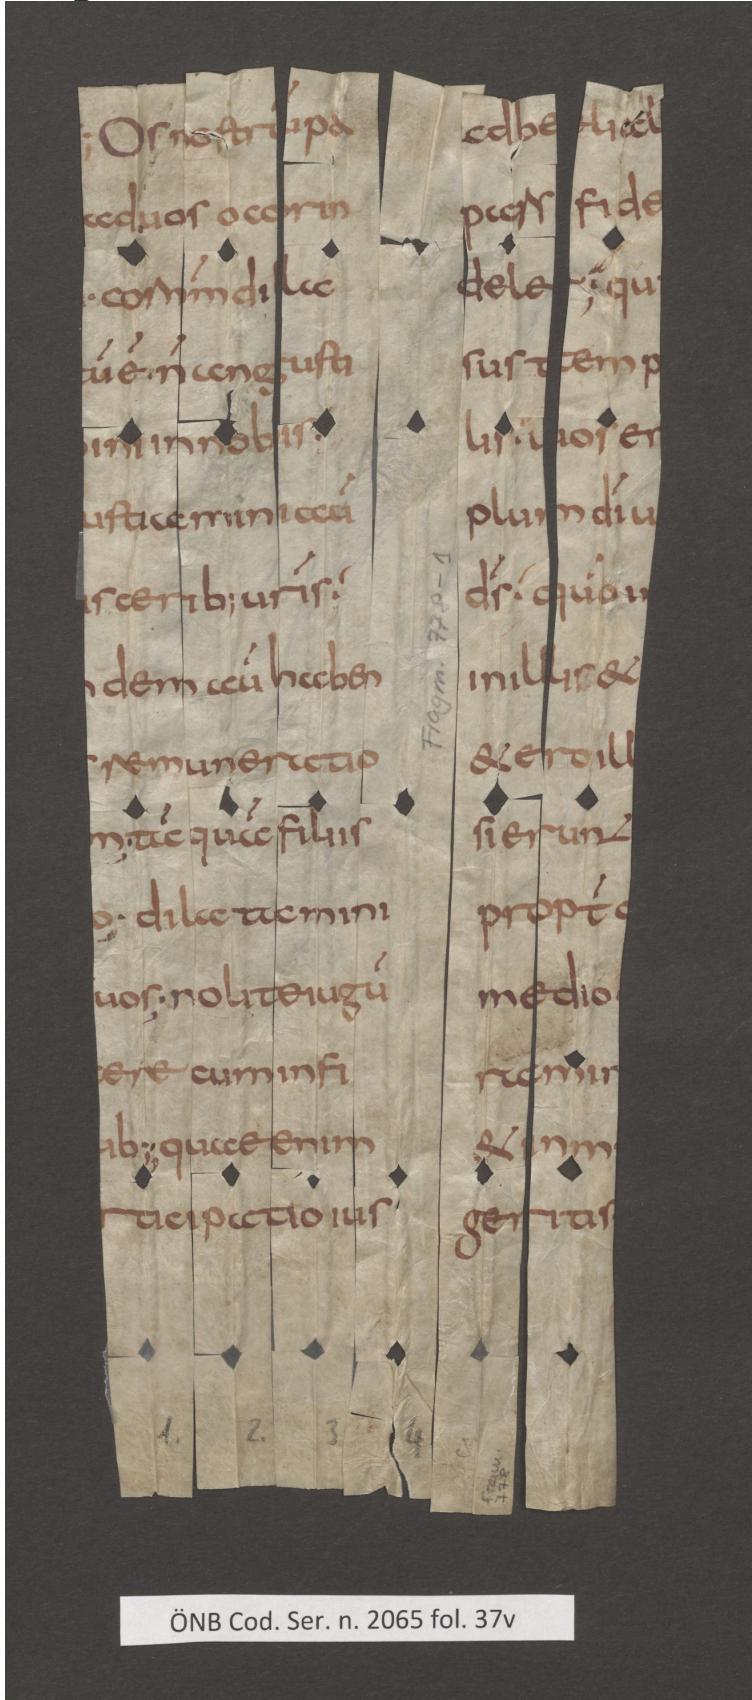 ; Os nostrū pa
ad uos o corin
· cor nrm dila
tū ē · n̄ angusti
ini in nobis·
ustiamini aū
isceribus uris·
ndem aū haben
remuneratio
m; tā quā filiis
o· dilatamini
uos; nolite iugū
ere cum infi
ab; quae enim
rticipatio ius
ad belial
pars fide
deler; qu
sus temp
lis· uos er
plum di u
ds· quo in
in illis &
& ero ill
si erunt
propt e
medio
ramin
& inm
geritis
Fragm. 778-1
1. 2. 3 4
Fragm. 778
ÖNB Cod. Ser. n. 2065 fol. 37v